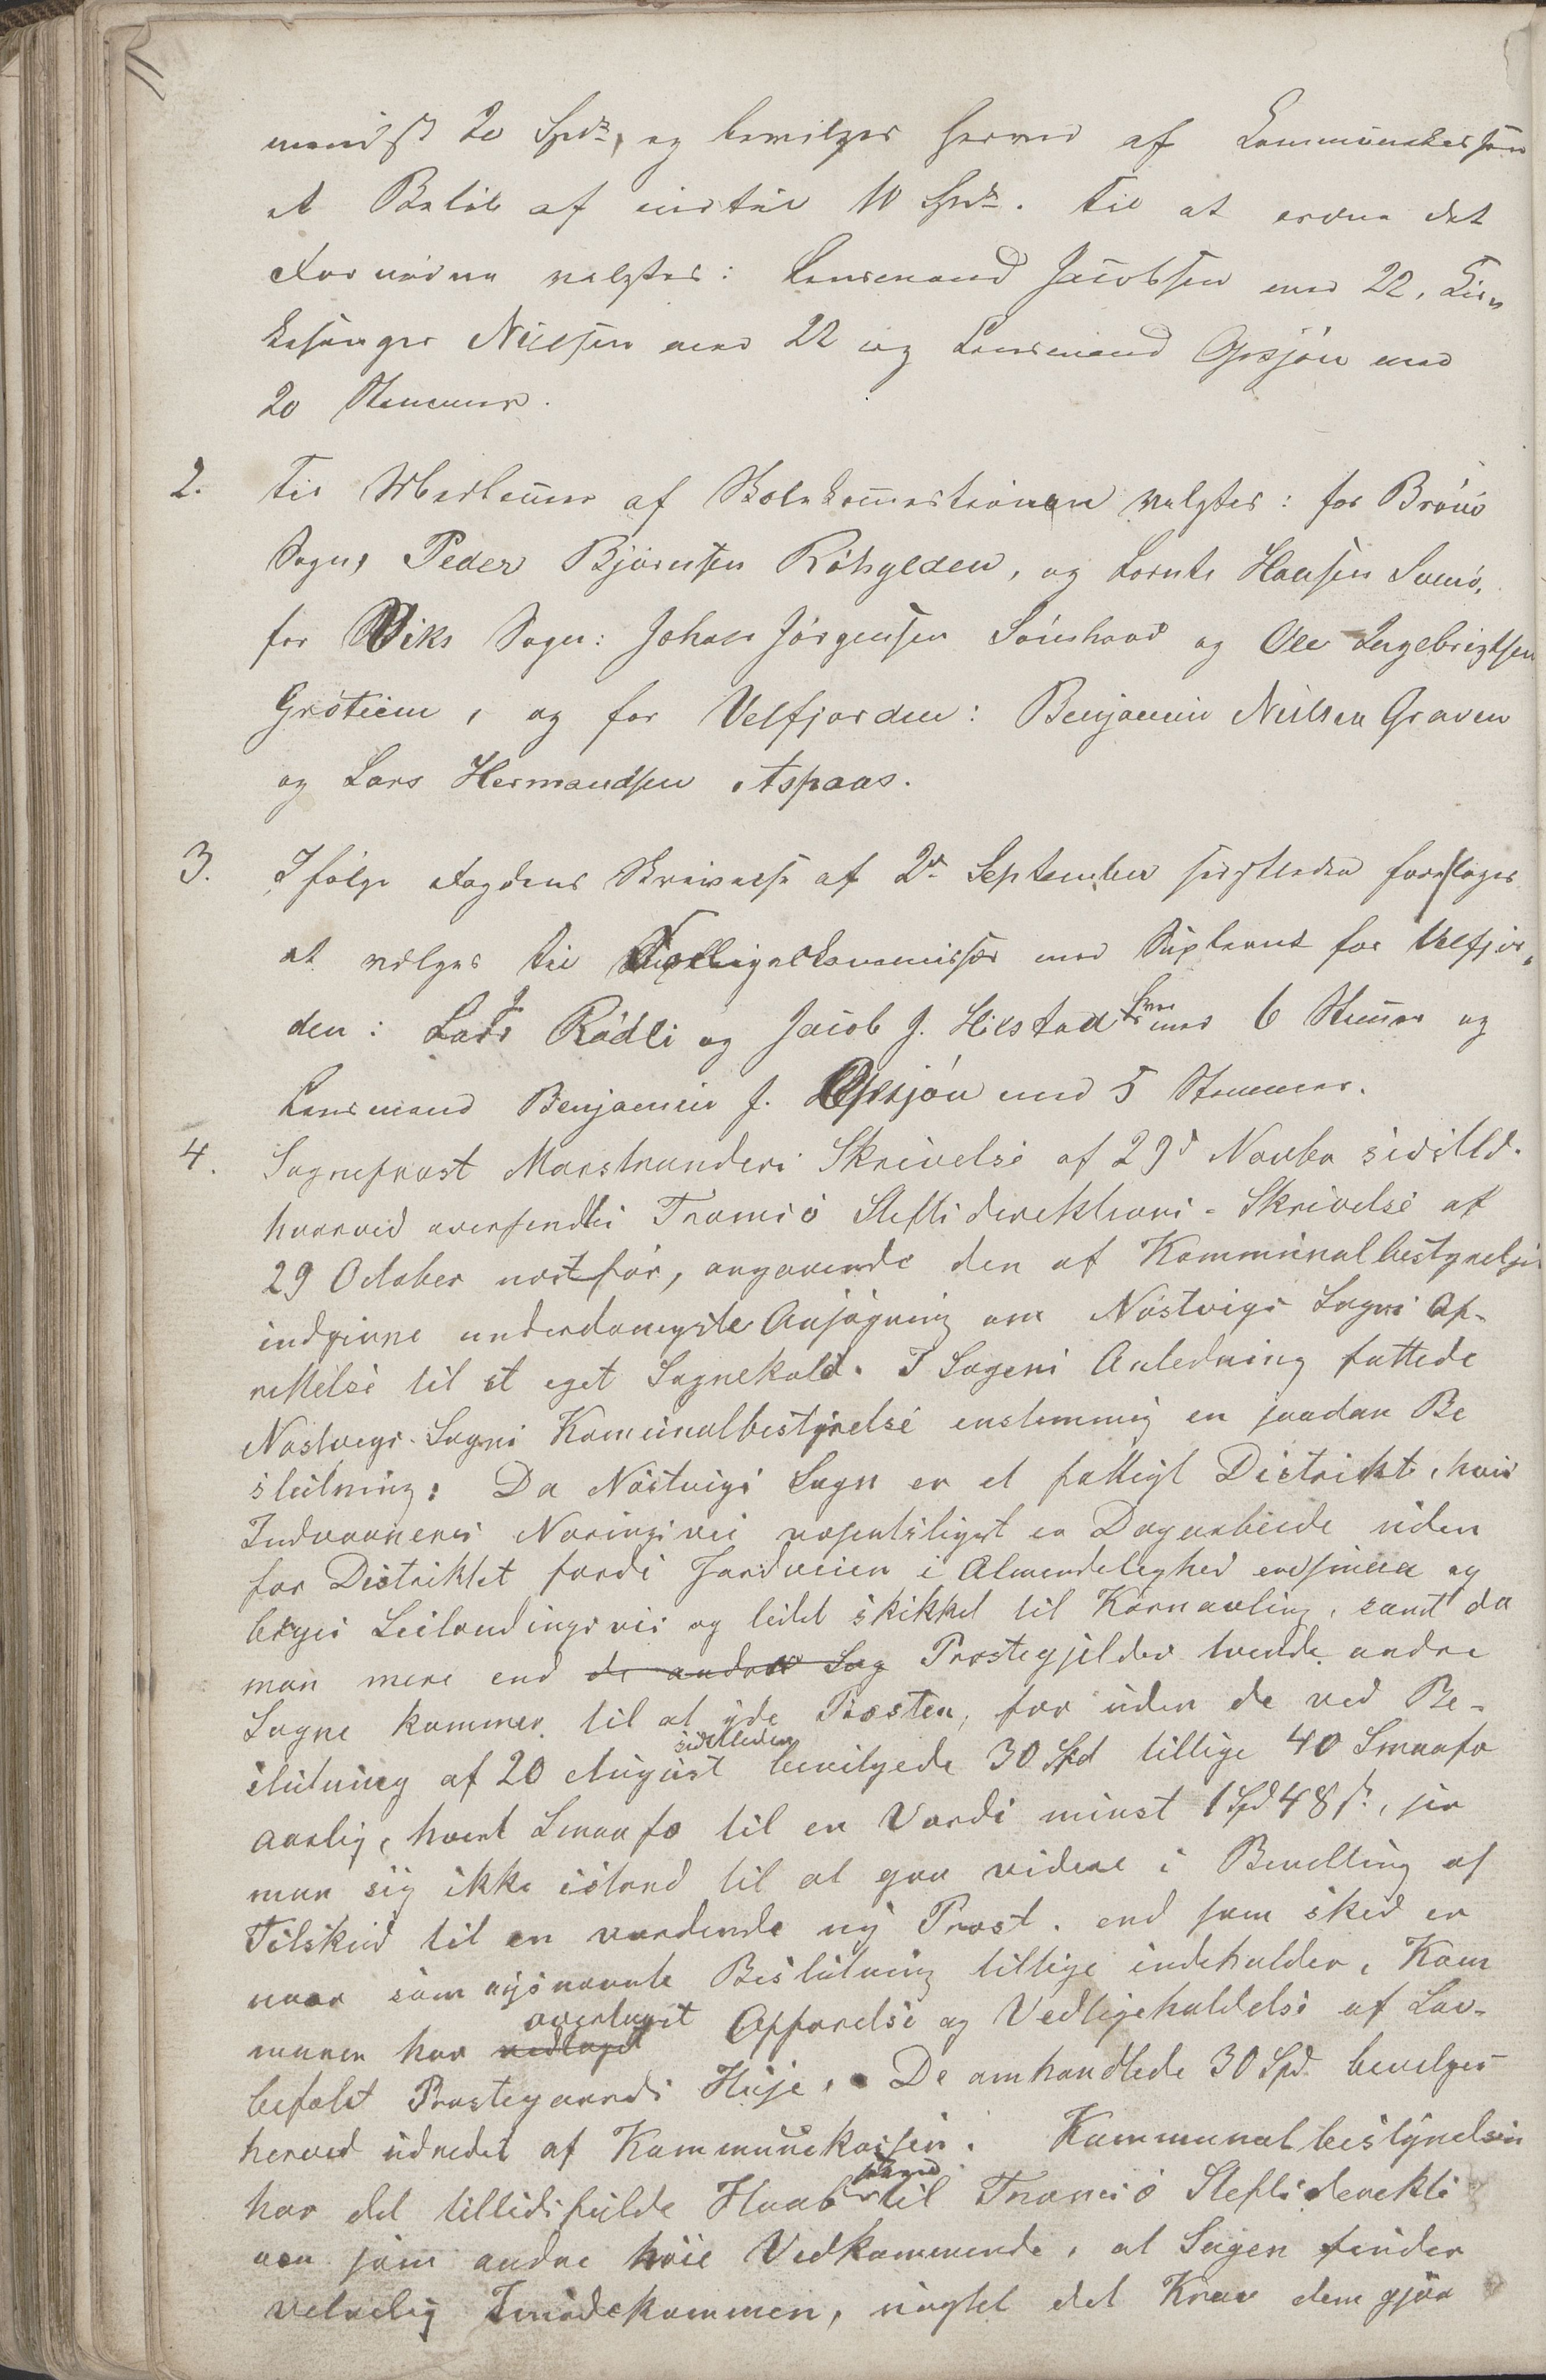 mindst 20 Spd, og bevilges herved af Kommunekassen
et Beløb af indtil 10 Spd. Til at ordne det
Fornødne valgtes: Lensmand Jacobsen med 22, Kir„
kesanger Nielsen med 22 og Lensmand Gpsjøn med
20 Stemmer.
2. Til Medlemmer af Skolekommissionen valgtes: for Brønø
Sogn, Peder Bjørnsen Røhylden, og Lornts Hansen Sømø,
for Viks Sogn: Johan Jørgensen Sørnhavd og Ole Ingebrigtsen
Grøtiem, og for Velfjorden: Benjamin Nielsen Graven
og Lars Hermandsen Aspaas.
3. Ifølge Fogdens Skrivelse af 2d September sidstleden foresloges
at vælges til Forligelseskommissær med Supleant for Velfjor„
den: Lars J. Rødli og Jacob J. Hilstad hver med 6 Stemmer og
Lensmand Benjamin J. Gpsjøn med 5 Stemmer.
4. Sognepræst Marstranders Skrivelse af 29d Novbr sidstld.
hvorved oversendtes Tromsø Stiftsdirektions-Skrivelse af
29 October næstfør, angaaende den af Kommunalbestyrelsen
indgivne underdanigste Ansøgning om Nøstvigs Sogns Op-
rettelse til et eget Sognekald. I Sagens Anledning fattede
Nøstvigs-Sogns Komunalbestyrelse enstemmig en saadan Be
slutning: Da Nøstvigs Sogn er et fattigt Distrikt, hvis
Indvaaneres Næringsvei væsentligst er Dagarbeide uden
for Distriktet fordi Jordveien i Almindelighed er smaa og
bryges Leilændingsvis og lidet skikket til Kornavling, samt da
man mere end de andre Sog Præstegjeldets tvende andre
Sogne kommer til at yde Præsten, for uden de ved Be-
slutning af 20 August sidstleden bevilgede 30 Spd tillige 40 Smaafæ
aarlig, hvert Smaafæ til en Værdi minst 1 Spd 48 s., ser
man sig ikke istand til at gaa videre i Bevilling af
Tilskud til en vordende ny Præst. end som sked er
naar som nysnævnte Beslutning tillige indeholder, Kom
munen har vedtaget overtaget Opførelse og Vedligeholdelse af Lov-
befalet Præstegaards Huse. De omhandlede 30 Spd bevilges
herved udredet af Kommunekassen. Kommunalbestyrelsen
har det tillidsfulde Haab saavel til Tromsø Stiftsdirekti
on som andre høie Vedkommende, at Sagen finder
velvilig Imødekommen, uagtet det Krav dem gjør